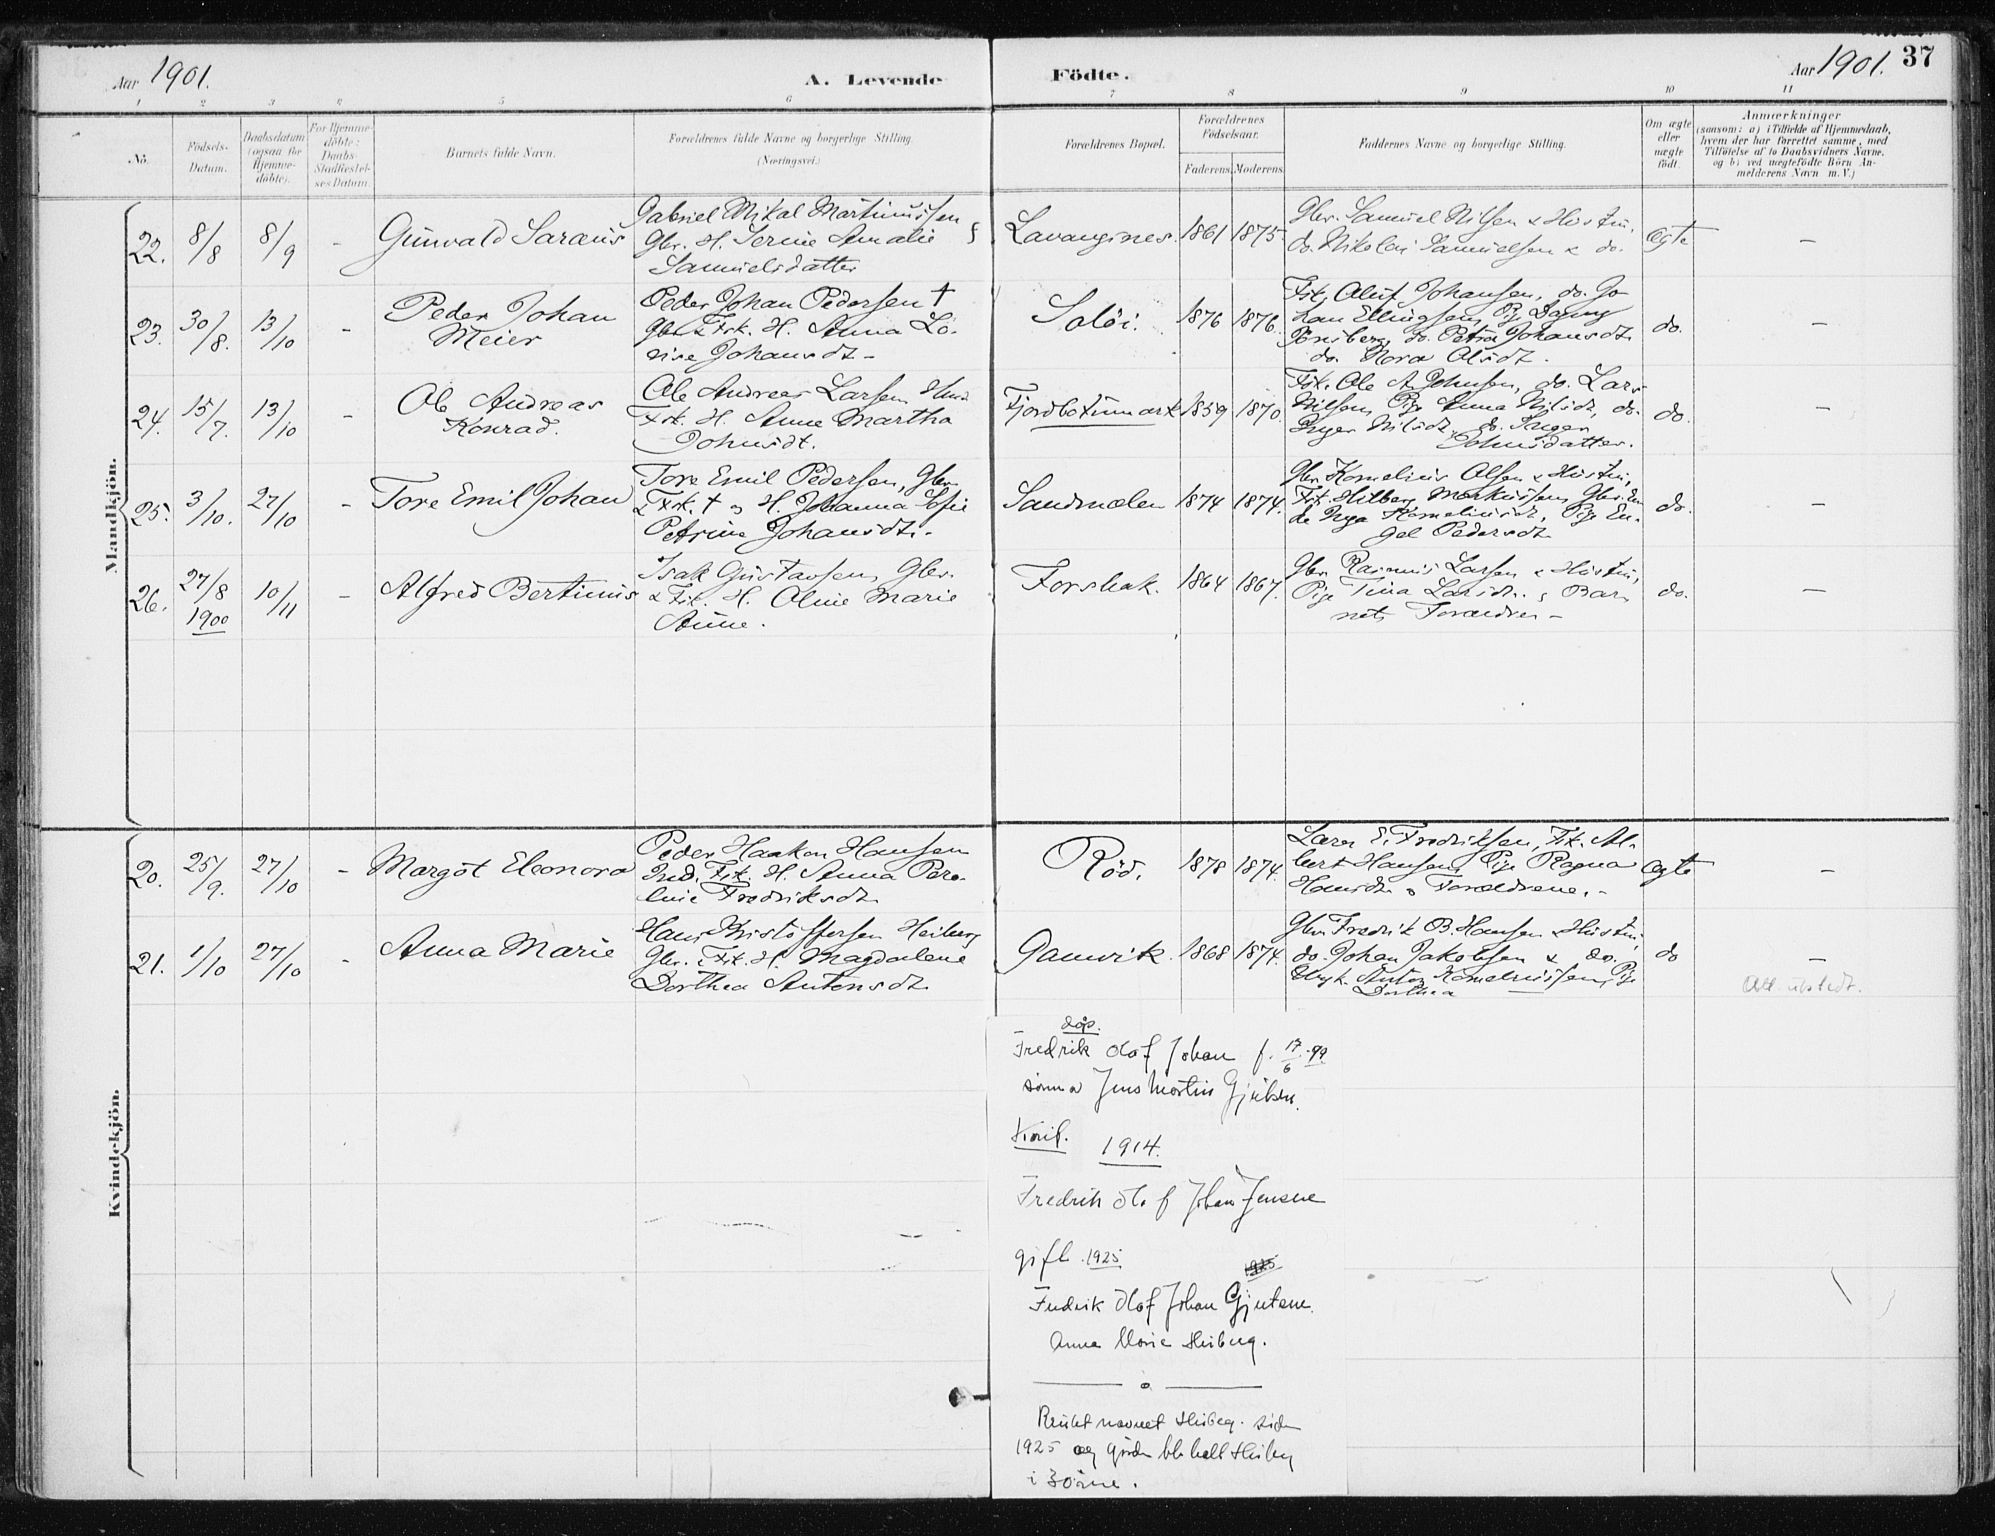 Aar 1901.
A. Levende
Födte.
Aar 1901.
37
1 2 3 4 5 6 7 8 9 10 11
No.
Födsels-
Datum.
Daabsdatum
(ogsaa for
Hjemme-
döbte).
For Hjemme-
döbte:
Daabs-
Stadfæstel-
ses Datum
Barnets fulde Navn.
Forældrenes fulde Navne og borgerlige Stilling.
(Næringsvei.)
Forældrenes Bopæl.
Forældrenes
Födselsaar.
Faderens. Moderens.
Faddernes Navne og borgerlige Stilling.
Om ægte
eller
uægte
født.
Anmærkninger
(saasom: a) i Tilfælde af Hjemmedaab,
hvem der har forrettet samme, med
Tilföielse af to Daabsvidners Navne.
og b) ved uægtefödte Börn An-
melderens Navn m. V.)
Mandkjön.
22. 8/8 8/9 - Gunvald Saraus
Gabriel Mikal Martinussen
Gbr. H. Serine Amalie
Samuelsdatter
Lavangsnes. 1861 1875.
Gbr. Samuel Nilsen & Hustru,
do. Nikolai Samuelsen & do.
Ægte -
23. 30/8. 13/10 - Peder Johan
Meier
Peder Johan Pedersen †
Gbr & Fsk. H. Anna Lo-
vise Johansdt -
Soløi. 1876 1876.
Fsk. Oluf Johansen, do. Jo-
han Ellingsen, Pige Dagny
Tönsberg, do. Petra Johansdt.
do. Nora Olsdt.
do. -
24. 15/7. 13/10 - Ole Andreas
Konrad.
Ole Andreas Larsen
Fsk. H. Anne Martha
Johnsdt.
Fjordbotnmark 1859 1870.
Fsk. Ole A. Johnsen, do. Lars
Nilsen, Pige Anna Nilsdt, do.
Inger Nilsdt, do. Inger
Johnsdatter.
do. -
25. 3/10. 27/10 - Tore Emil Johan
Tore Emil Pedersen, Gbr.
& Fsk. † o H. Johanna Sofie
Petrine Johansdt.
Sandmælen 1874 1874.
Gbr Kornelius Olsen & Hustru,
Fsk. Hilberg Markussen, Gbr. En-
ke Inga Korneliusdt, Pige En-
gel Pedersdt
do. -
26. 27/8 1900 10/11 - Alfred Bertinus
Isak Gustavsen Gbr.
& Fsk. H. Oline Marie
Anne.
Forshak. 1864 1867.
Gbr. Rasmus Larsen & Hustru,
Pige Tina Larsdt. & Bar-
nets Forældre -
do. -
Kvindekjön.
20. 25/9. 27/10 - Margot Eleonora
Peder Haakon Hansen
Inds. Fsk. H. Anna Pero-
line Fredriksdt.
Röd. 1878 1874.
Lærer E. Fredriksen, Fsk. Al-
bert Hansen, Pige Ragna
Hansdt o Forældrene. -
Ægte -
21. 1/10 27/10 - Anna Marie
Hans Kristoffersen Heiberg
Gbr. & Fsk. H. Magdalene
Dorthea Antonsdt.
Gamvik. 1868 1874.
Gbr. Fredrik B. Hansen & Hustru,
do. Johan Jakobsen & do.
Ungk. Anton Korneliussen, Pige
Dorthea
do -
Att. utstedt.
döp.
Fredrik Olof Johan f. 17/6 - 99
sönn a Jens Martin Gjutsen.
Konf. 1914.
Fredrik Olof Johan Jensen
gift 1925 1925
Fredrik Olof Johan Gjutsen.
Anna Marie Heiberg.
Brukt navnet Heiberg siden
1925 og
i